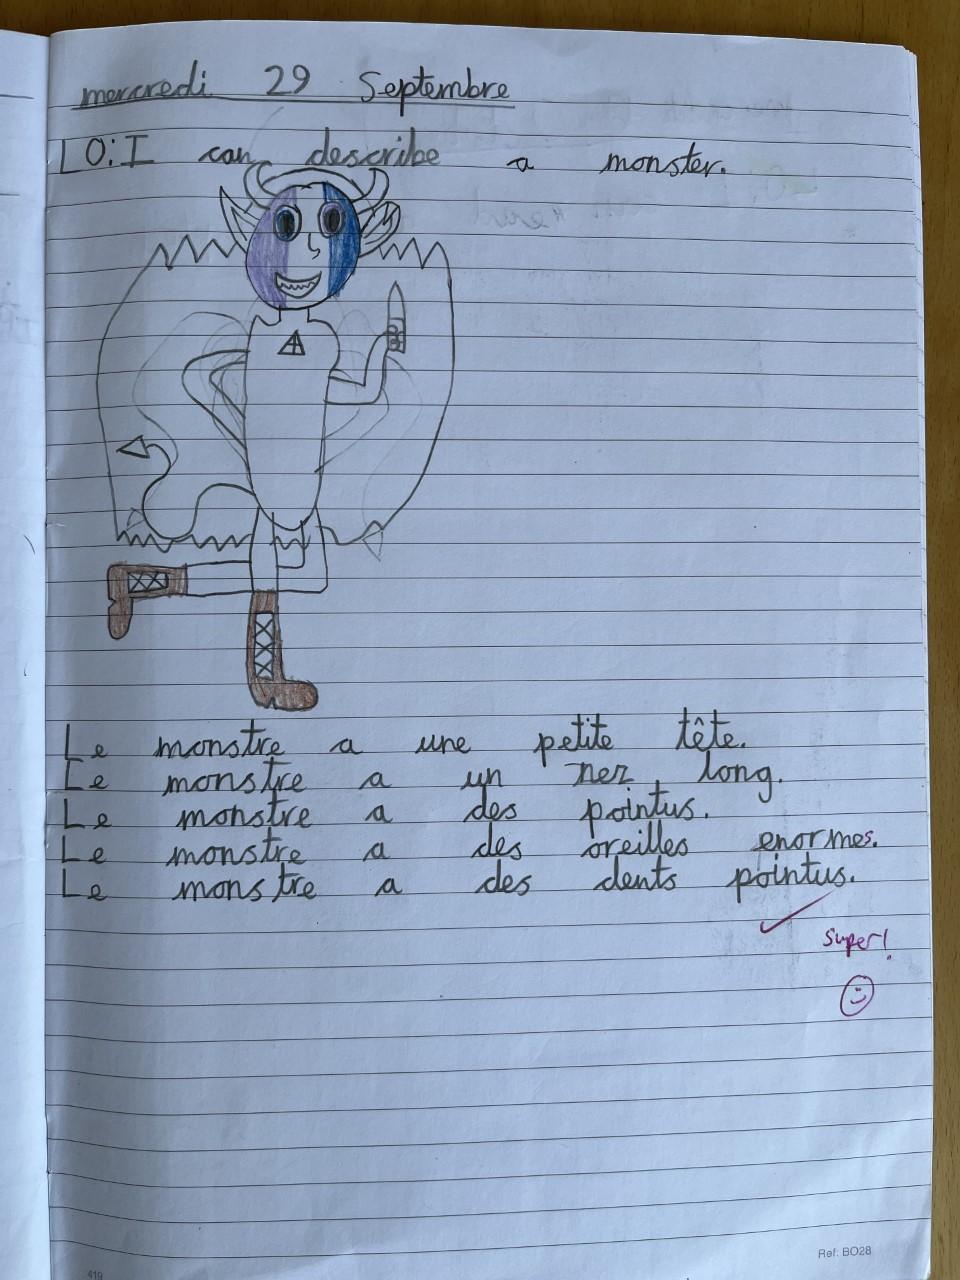 mercredi 29 Septembre
LO: I can describe a monster.
Le monstre a une petite tête.
Le monstre a un nez long.
Le monstre a des pointus.
Le monstre a des oreilles enormes.
Le monstre a des dents pointus.
super!
Ref: BO28
419